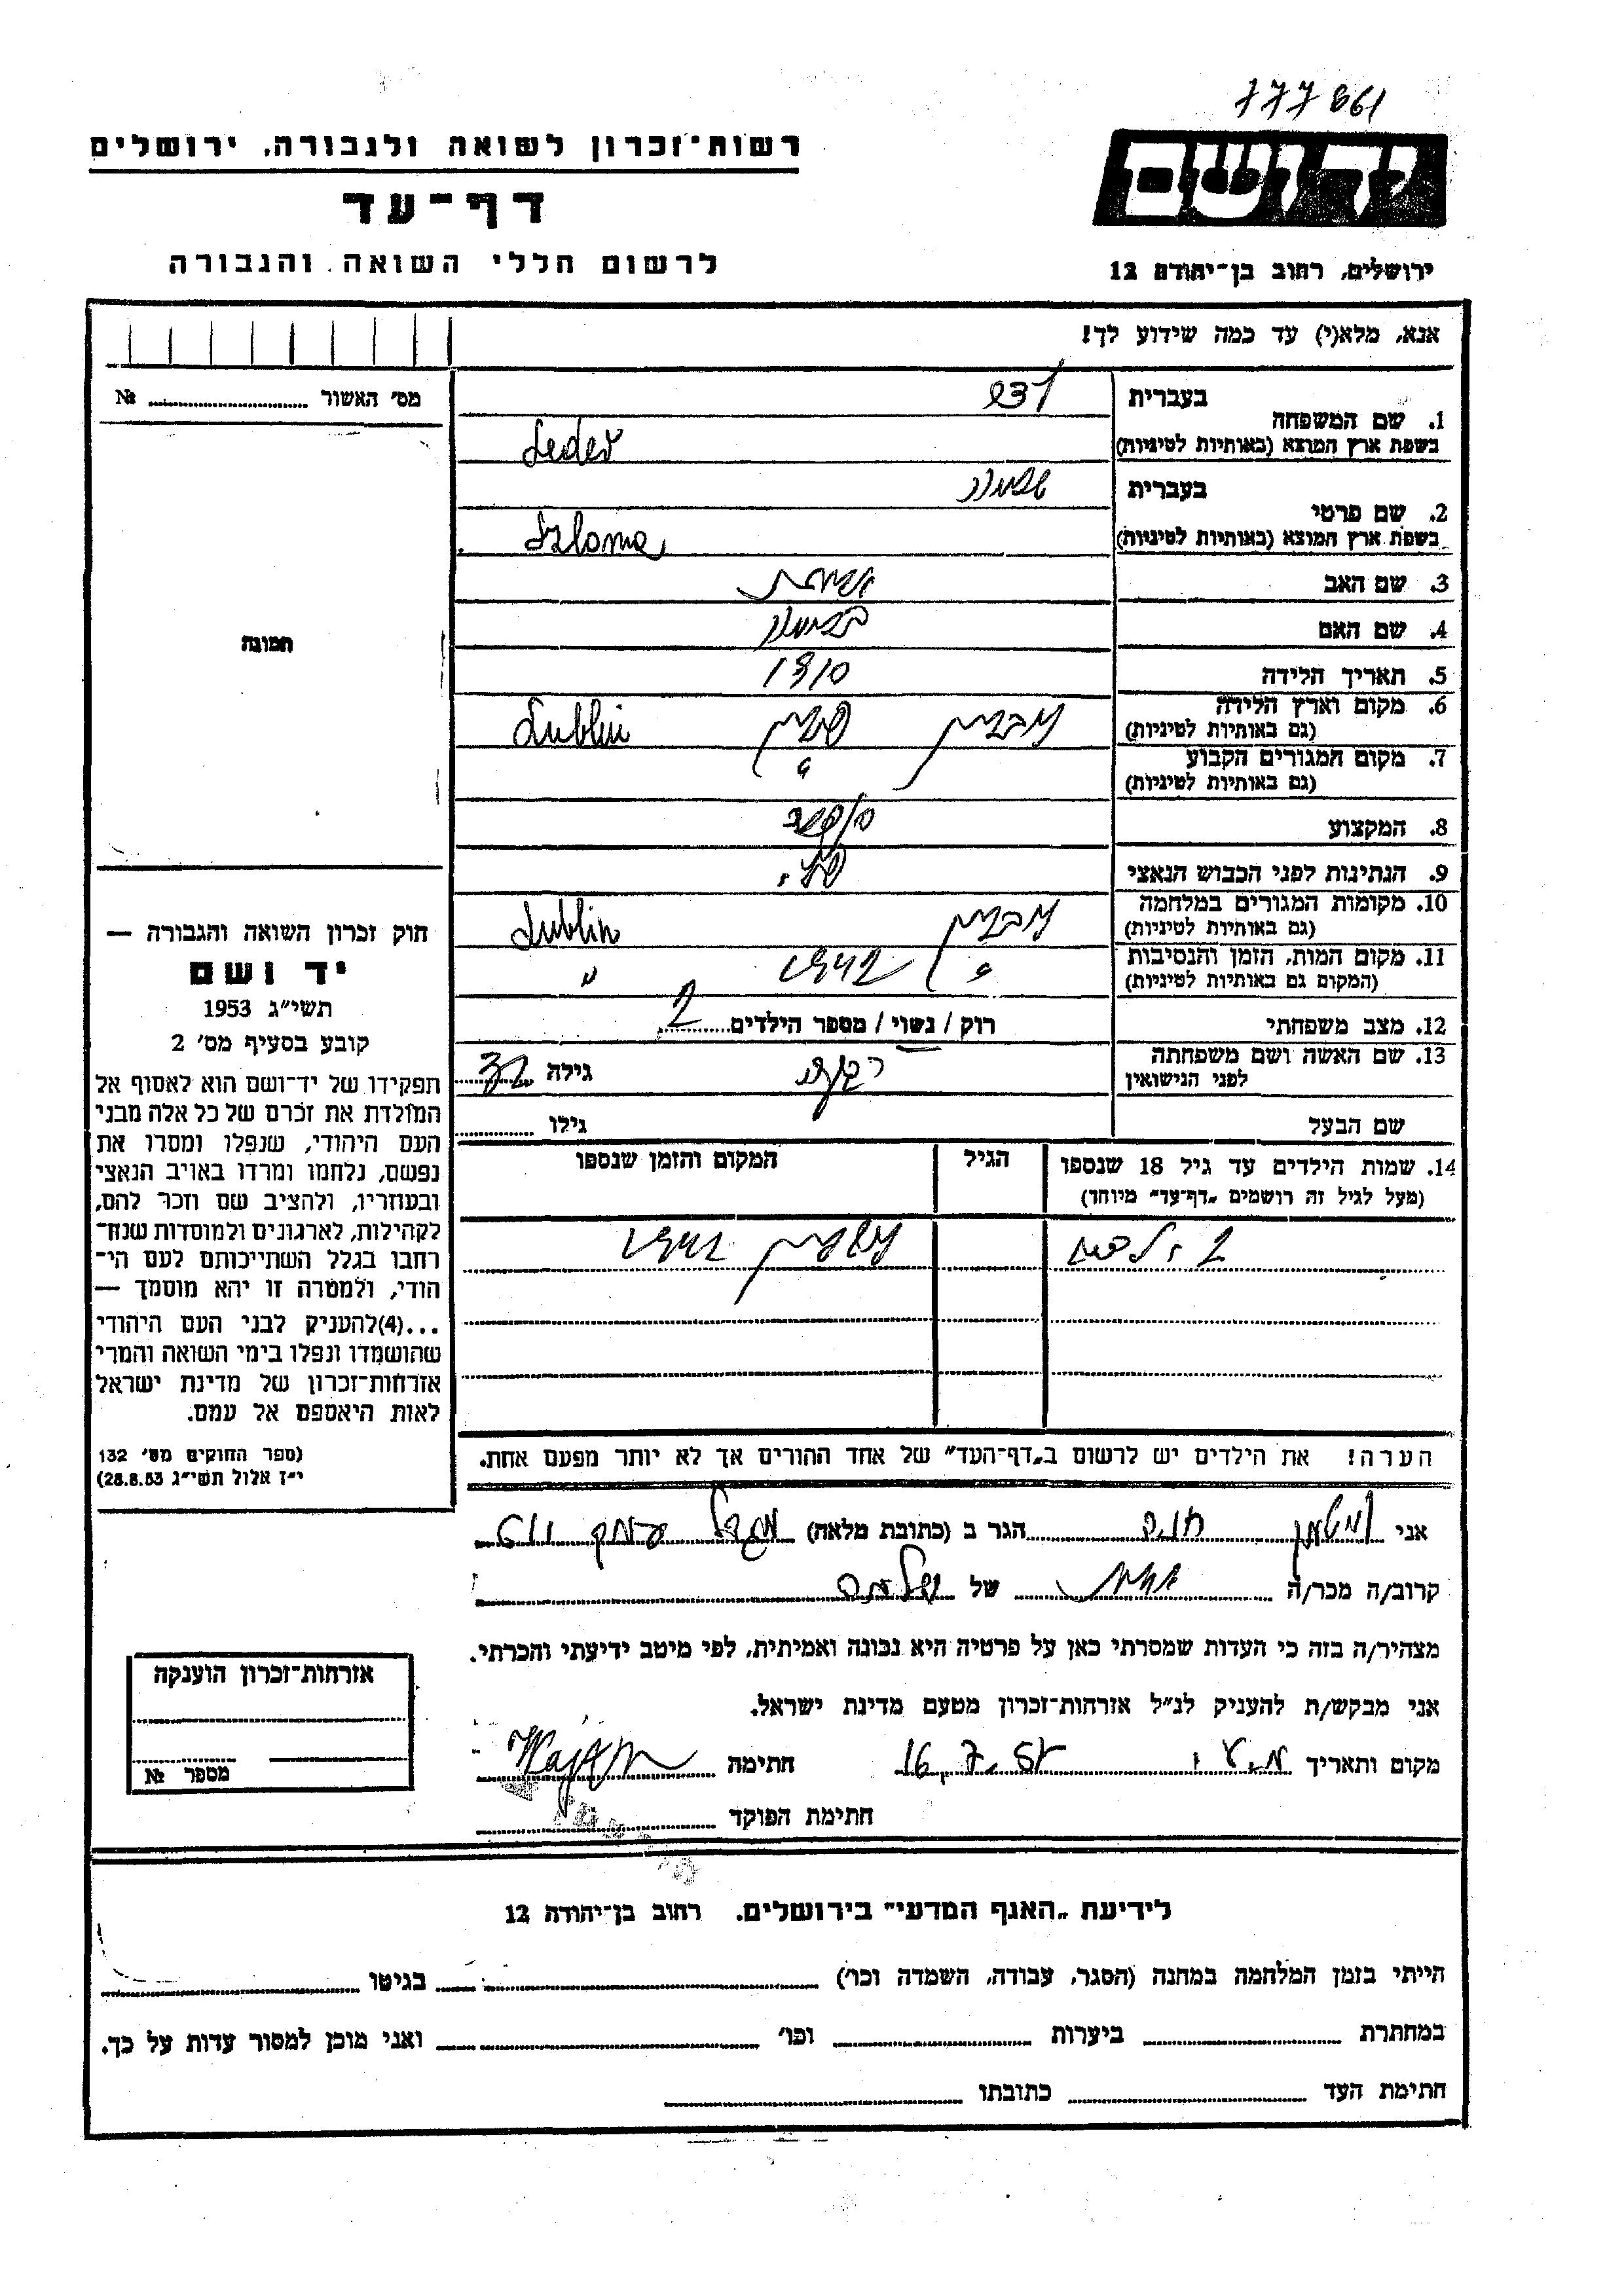 777861
רשות־זכרון לשואה ולגבורה, ירושלים
דף־עד
לרשום חללי השואה והגבורה
יד ושם
ירושלים, רחוב בן־יהודה 12
אנא, מלא(י) עד כמה שידוע לך!
מס' האשור № 
1. שם המשפחה
בעברית
בשפת ארץ המוצא (באותיות לטיניות) Leder
2. שם פרטי
בעברית
בשפת ארץ המוצא (באותיות לטיניות) Szloma
3. שם האב
4. שם האם
5. תאריך הלידה 1910
6. מקום וארץ הלידה
(גם באותיות לטיניות) לובלין פולין Lublin
7. מקום המגורים הקבוע
(גם באותיות לטיניות) "
8. המקצוע
9. הנתינות לפני הכבוש הנאצי פול.
10. מקומות המגורים במלחמה
(גם באותיות לטיניות) לובלין Lublin
11. מקום המות, הזמן והנסיבות
(המקום גם באותיות לטיניות) " 1942 "
12. מצב משפחתי רוק / נשוי / מספר הילדים 2
13. שם האשה ושם משפחתה
לפני הנישואין רבקה גילה 32
שם הבעל גילו
14. שמות הילדים עד גיל 18 שנספו
(מעל לגיל זה רושמים „דף־עד" מיוחד)
הגיל
המקום והזמן שנספו
2 ילדים 1942
הערה! את הילדים יש לרשום ב„דף־העד" של אחד ההורים אך לא יותר מפעם אחת.
תמונה
חוק זכרון השואה והגבורה —
יד ושם
תשי"ג 1953
קובע בסעיף מס' 2
תפקידו של יד־ושם הוא לאסוף אל
המולדת את זכרם של כל אלה מבני
העם היהודי, שנפלו ומסרו את
נפשם, נלחמו ומרדו באויב הנאצי
ובעוזריו, ולהציב שם וזכר להם,
לקהילות, לארגונים ולמוסדות שנח־
רחבו בגלל השתייכותם לעם הי־
הודי, ולמטרה זו יהא מוסמך —
...(4)להעניק לבני העם היהודי
שהושמדו ונפלו בימי השואה והמרי
אזרחות־זכרון של מדינת ישראל
לאות היאספם אל עמם.
(ספר החוקים מס' 132
י"ז אלול תשי"ג 28.8.53)
אני הגר ב (כתובת מלאה) מגדל העמק
קרוב/ה מכר/ה של
מצהיר/ה בזה כי העדות שמסרתי כאן על פרטיה היא נכונה ואמיתית, לפי מיטב ידיעתי והכרתי.
אני מבקש/ת להעניק לנ"ל אזרחות־זכרון מטעם מדינת ישראל.
מקום ותאריך 16.7.57 חתימה
חתימת הפוקד
אזרחות־זכרון הוענקה
מספר №
לידיעת „האגף המדעי" בירושלים. רחוב בן־יהודה 12
הייתי בזמן המלחמה במחנה (הסגר, עבודה, השמדה וכו') בגיטו
במחתרת ביערות וכו' ואני מוכן למסור עדות על כך.
חתימת העד כתובתו